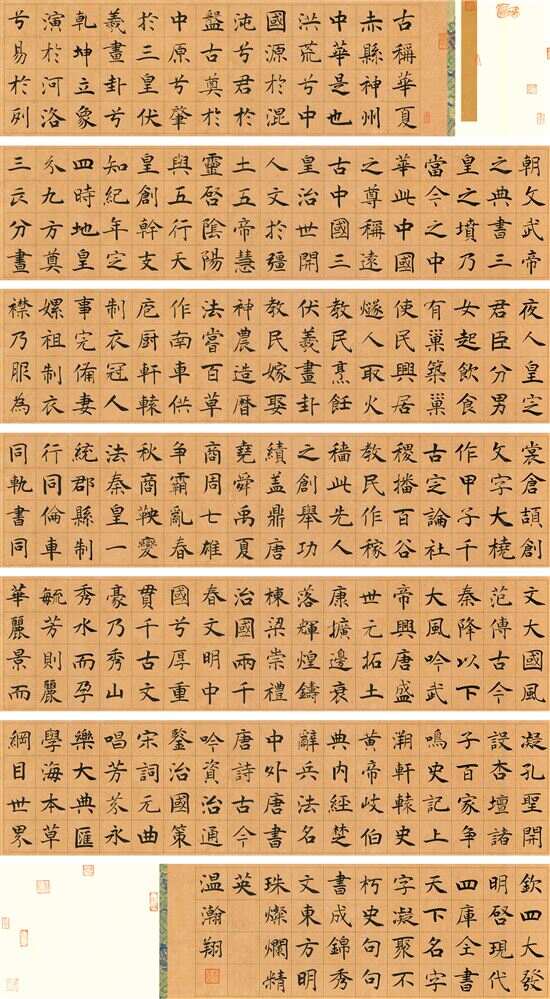 古稱華夏
赤縣神州
中華是也
洪荒兮中
國源於混
沌兮君於
盤古奠於
中原兮肇
於三皇伏
羲畫卦兮
乾坤立象
演於河洛
兮易於列
朝文武帝
之典書三
皇之墳乃
當今之中
華此中國
之尊稱遠
古中國三
皇治世開
人文於疆
土五帝慧
靈啓陰陽
與五行天
皇創幹支
知紀年定
四時地皇
分九方奠
三辰分晝
夜人皇定
君臣分男
女起飲食
有巢築巢
使民興居
燧人取火
教民烹飪
伏羲畫卦
教民嫁娶
神農造曆
法嘗百草
作南車供
庖厨軒轅
制衣冠人
事完備妻
嫘祖制衣
襟乃服為
裳倉頡創
文字大橈
作甲子千
古定論社
稷播百谷
教民作稼
穡此先人
之創舉功
績蓋鼎唐
堯舜禹夏
商周七雄
爭霸亂春
秋商鞅變
法秦皇一
統郡縣制
行同倫車
同軌書同
文大國風
范傳古今
秦降以下
大風吟武
帝興唐盛
世元拓土
康擴邊衰
落輝煌鑄
棟梁崇禮
治國兩千
春文明中
國兮厚重
貫千古文
豪乃秀山
秀水而孕
毓芳則麗
華麗景而
凝孔聖開
設杏壇諸
子百家爭
鳴史記上
溯軒轅史
黃帝岐伯
典內經楚
辭兵法名
中外唐書
唐詩古今
吟資治通
鑒治國策
宋詞元曲
唱芳芬永
樂大典匯
學海本草
綱目世界
欽四大發
明啓現代
四庫全書
天下名字
字凝聚不
朽史句句
書成錦秀
文東方明
珠燦爛精
英
温瀚翔